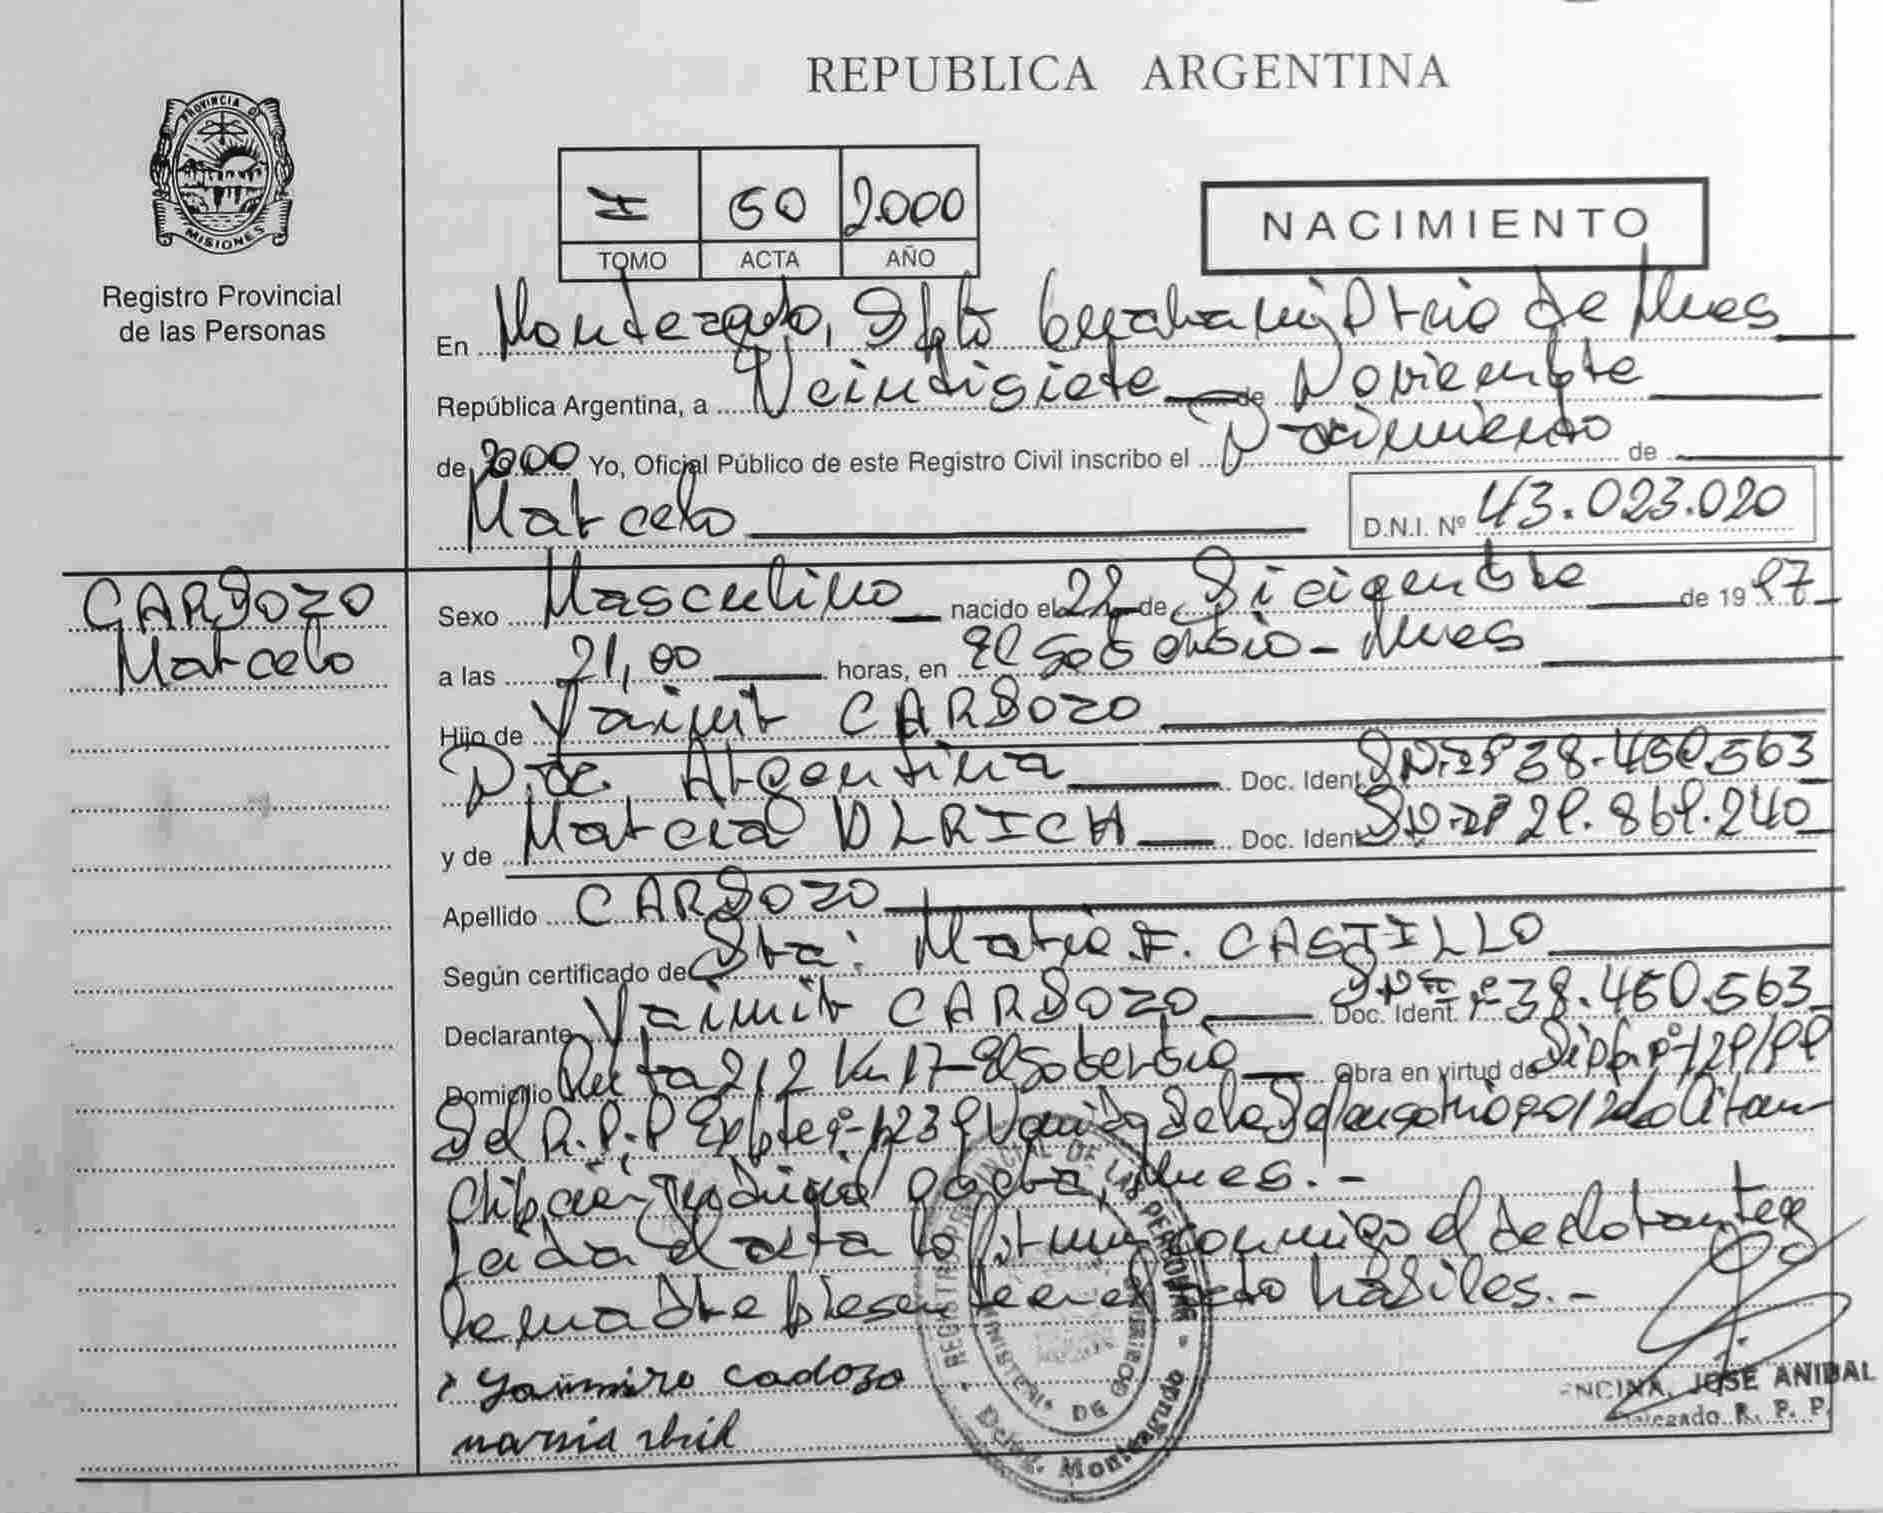 REPUBLICA ARGENTINA
PROVINCIA DE
MISIONES
Registro Provincial
de las Personas
I 60 2000
TOMO ACTA AÑO
NACIMIENTO
En Monteagudo, Dpto Guaraní Ptrio de Mnes
República Argentina, a Veintisiete de Noviembre
de 2000 Yo, Oficial Público de este Registro Civil inscribo el Nacimiento de
Marcelo D.N.I. Nº 43.023.020
CARDOZO
Marcelo
Sexo Masculino nacido el 22 de Diciembre de 1997
a las 21,00 horas, en El Soberbio - Mnes
Hijo de Vaimir CARDOZO
Nac. Argentina Doc. Ident. DNI Nº 38.450.563
y de Marcia ULRICH Doc. Ident. DNI Nº 29.869.240
Apellido CARDOZO
Según certificado de Sta: Maria F. CASTILLO
Declarante Vaimir CARDOZO Doc. Ident. DNI Nº 38.450.563
Domicilio Ruta 212 Km 17 - El Soberbio Obra en virtud de Disp. Nº 129/99
del R.P.P Expte Nº 1239 de la Defensoria
cripción Judicial Oberá, Mnes. -
Leida el acta la firma conmigo el declarante y
la madre presente en el acto hábiles. -
Yammiro cadozo
marsia
REGISTRO PROVINCIAL DE LAS PERSONAS
MINISTERIO DE GOBIERNO
Deleg. Monteagudo
ENCINA, JOSE ANIBAL
Delegado R. P. P.